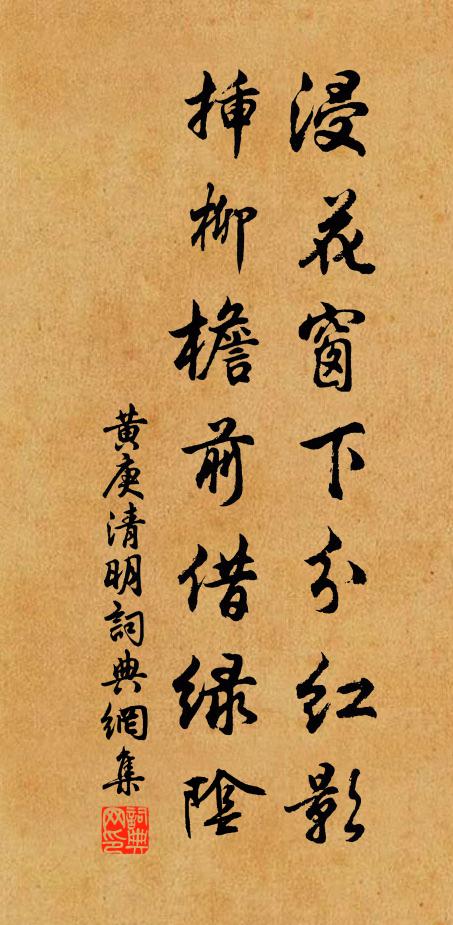 浸花窗下分红影
插柳檐前借绿陰
黄庚清明詞典網集
詞典网印